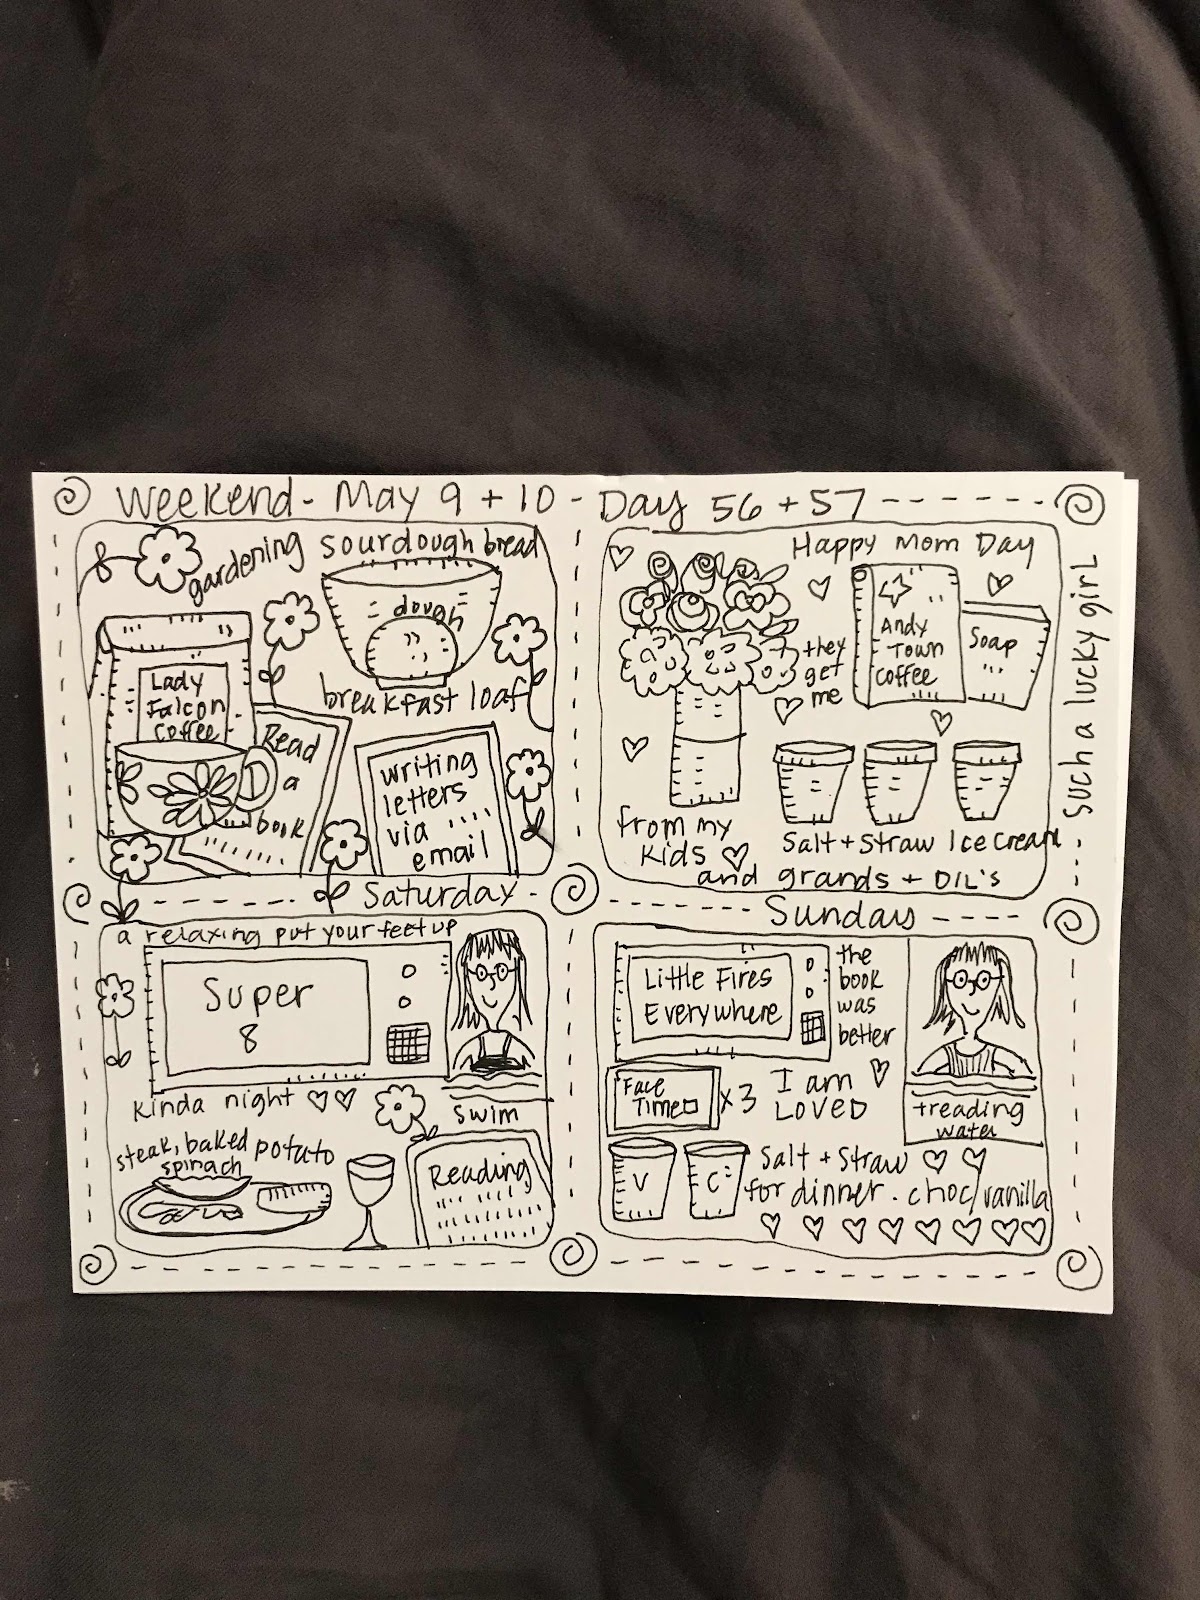 Weekend - May 9 + 10 - Day 56 + 57
gardening
sourdough bread
dough
breakfast loaf
Lady
Falcon
Coffee
Read
a
book
writing
letters
via ....
email
Happy Mom Day
they
get
me
Andy
Town
Coffee
Soap
from my
kids
and grands + DIL's
Salt + Straw Ice Cream
Such a lucky girl
Saturday
Sunday
a relaxing put your feet up
Super
8
kinda night
swim
steak, baked potato
spinach
Reading
Little Fires
Everywhere
the
book
was
better
Face
Time
x3
I am
LOVED
treading
water
V
C
Salt + Straw
for dinner. choc/vanilla